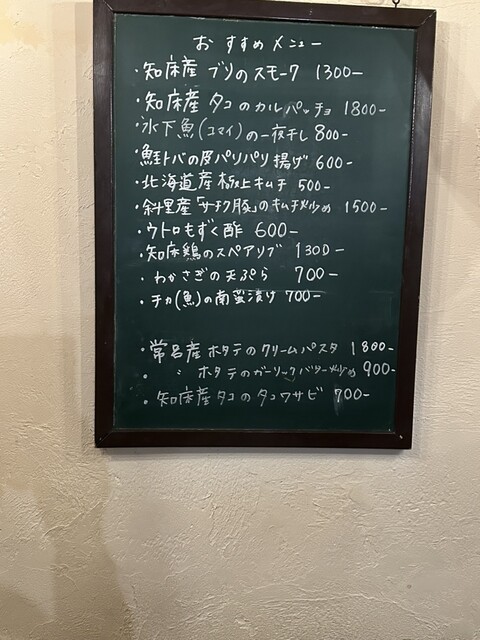 おすすめメニュー
・知床産 ブリのスモーク 1300-
・知床産 タコのカルパッチョ 1800-
・氷下魚(コマイ)の一夜干し 800-
・鮭トバの皮パリパリ揚げ 600-
・北海道産極上キムチ 500-
・斜里産「サチク豚」のキムチ炒め 1500-
・ウトロもずく酢 600-
・知床鶏のスペアリブ 1300-
・わかさぎの天ぷら 700-
・チカ(魚)の南蛮漬け 700-
・常呂産ホタテのクリームパスタ 1800-
・ 〃 ホタテのガーリックバター炒め 900-
・知床産タコのタコワサビ 700-